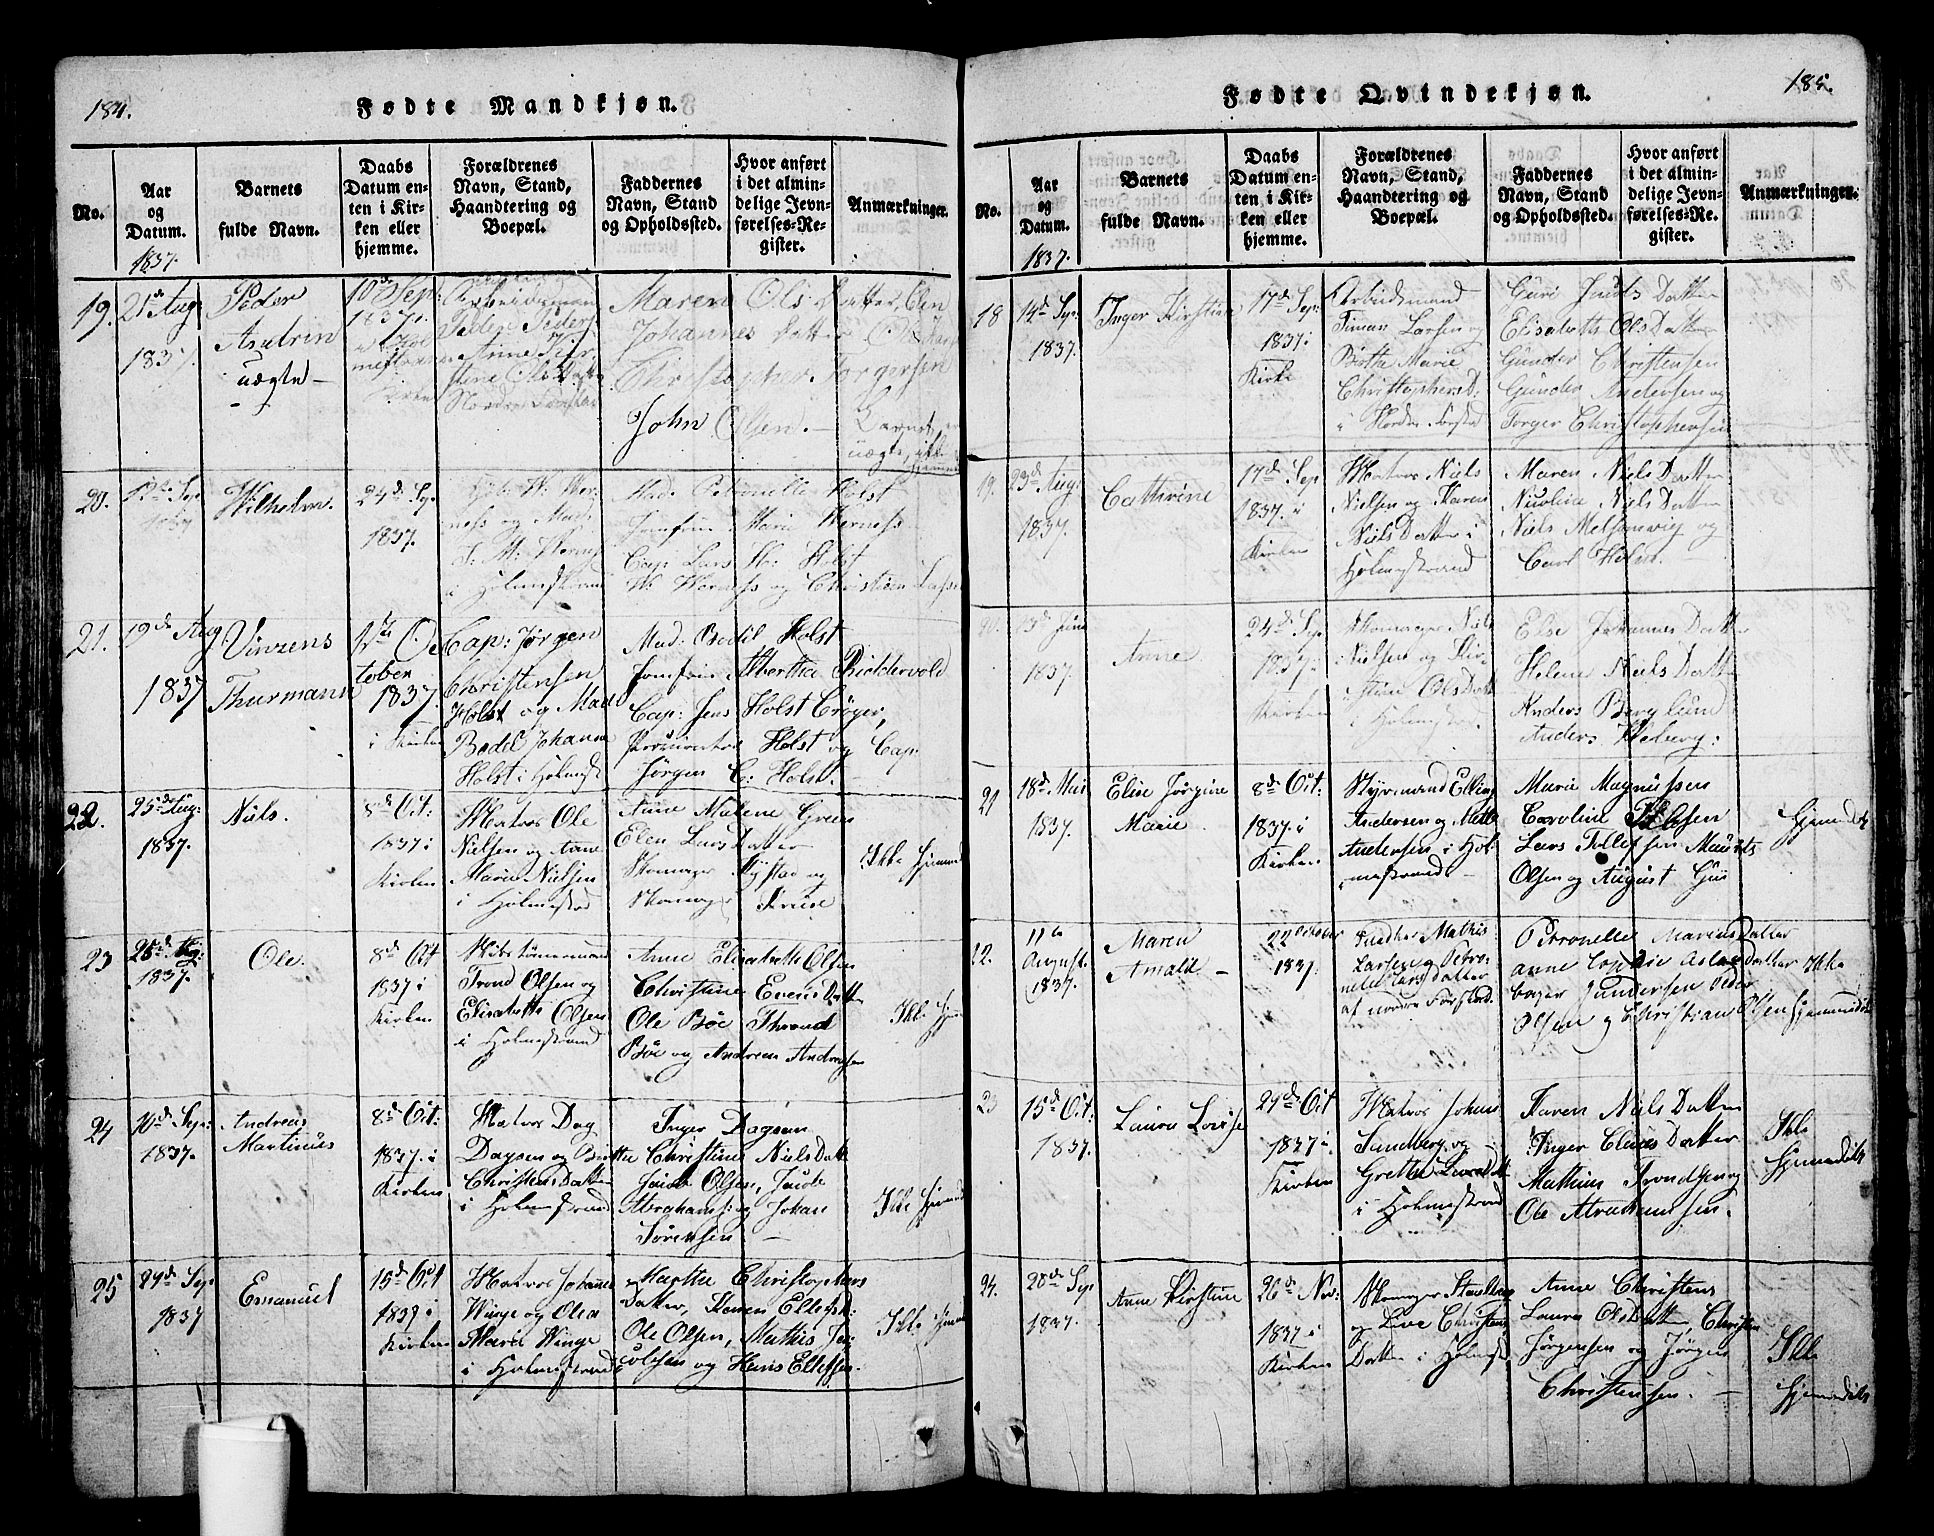 184.
Fødte Mandkjøn.
No.
Aar
og
Datum.
Barnets
fulde Navn.
Daabs
Datum en-
ten i Kir-
ken eller
hjemme.
Forældrenes
Navn, Stand,
Haandtering og
Boepæl.
Faddernes
Navn, Stand
og Opholdssted.
Hvor anført
i det almin-
delige Jevn-
førelses-Re-
gister.
Anmærkninger.
1837.
19.
21de Aug
1837.
Peder
uægte
10de Sep:
1837 i
Arbeidsmand
Peder Peders:
Anne Kir-
stine Olsdatter
Maren Olsdatter, Elen
Johannesdatter
Christopher Torgersen
John Olsen.
Barnet er
uægte, ikke
hjemmed
20.
Wilhelm.
24de Sep.
1837.
i Holmestrand
Mad. Petronelle Holst
Jomfru Marie Werness
Cap: Lars H: Holst
W. Werness og Christian
21.
19de Aug
1837
Vinzens
Thurmann
1ste Oc
tober
1837
i Kirken
Cap: Jørgen
Christensen
Holst og Mad
Bodel Johanne
Holst i Holmest
Mad: Bodil Holst
Jomfrue Albertha Riddervold
Cap: Jens Holst Crøger,
Procurator Holst og Cap:
Jørgen C: Holst.
22.
25de Aug:
1837.
Niels.
8de Oct:
1837 i
Kirken
Matros Ole
Nielsen og Anne
Marie Nielsen
i Holmestrand
Anne Malene Green
Elen Larsdatter
Skomager Nystad og
Skomager Kruse
Ikke hjemmed
23
25de Aug:
1837.
Ole.
8de Oct
1837 i
Kirken
Skibstømmermand
Trond Olsen og
Elisabeth Olsen
i Holmestrand
Anne Elisabeth Olsen
Christine Evensdatter
Ole Böe Thrond
Böe og Andreas Andersen
Ikke hjem
24
10de Sep:
1837.
Andreas
Martinus
8de Oct:
1837 i
Kirken
Matros Dag
Dagsen og Birthe
Christensdatter
i Holmestrand
Inger Dagsen
Christine Nielsdatt
Jacob Olsen, Jacob
Abrahams: og Johan
Sörensen
Ikke hjemmed
25
24de Sep
1837
Emanuel
15de Oct
1837 i
Kirken
Matros Johannes
Winge og Olea
Marie Winge
i Holmestrand
Marthe Christophers
Datter, Karen Ellefsd:
Ole Olsen, Mathis Ja-
cobsen og Hans Ellefsen.
Ikke hjemmed
185.
Fødte Qvindekjøn.
No.
Aar
og
Datum.
Barnets
fulde Navn.
Daabs
Datum en-
ten i Kir-
ken eller
hjemme.
Forældrenes
Navn, Stand,
Haandtering og
Boepæl.
Faddernes
Navn, Stand
og Opholdssted.
Hvor anført
i det almin-
delige Jevn-
førelses-Re-
gister.
Anmærkninger.
1837.
18
14de Sep:
1837.
Inger Kirstine
17de Sep:
1837 i
Kirke
Arbeidsmand
Timan Larsen og
Birthe Marie
Christophersd:
i Nordre Forstad
Guri Juulsdatter
Elisabeth Olsdatter
Gunder Christensen
Gunder Andersen og
Torger Christophersen
19.
23de Aug:
1837.
Cathrine
17de Sep
1837. i
Kirken
Matros Niels
Nielsen og Karen
Nielsdatter i
Holmestrand
Maren Nielsdatter
Nicoline Nielsdatter
Niels Melsomvig og
Carl Holm.
20.
3de Juni
1837.
Anne
24de Sep
1837
Kirken
Skomager Niels
Nielsen og Kir
stine Olsdatt
i Holmestrand
Else Johannesdatter
Helene Nielsdatter
Anders Berglund
Anders Moberg:
21
18de Mai
1837.
Elise Jørgine
Marie
8de Oct:
1837 i
Kirken
Styrmand Elling
Andersen og Mette
Andersen i Hol-
mestrand
Marie Magnussen
Caroline Olsen
Lars Tollefsen Maurits
Olsen og August Güs
Hjemmedøbt
22.
11te
August
1837.
Maren
Amalie
22 October
1837.
Mathis
Larsen og Petro-
nelle Larsdatter
af nordre Forstad.
Petronelle Mariusdatter
Anne Sophie Aslacdatter
Gundersen Peder
Olsen og Christian Olsen
Ikke
hjemmedøbt
23
15de Oct:
1837.
Laura Lovise
29de Oct
1837 i
Kirken
Matros Johan
Sundberg og
Grethe Larsdatt
i Holmestrand
Karen Nielsdatter
Inger Clausdatter
Mathias Trondsen og
Ole Abrahamsen.
Ikke
hjemmedøbt
24.
20de Sep
1837.
Anne Kirstine
26de Nov:
1837 i
Kirken
Skomager
og Live Christens
Datter i Holmest
Anne Christens
Laura Olsdatter, Christen
Jörgensen og Jörgen
Christensen.
Ikke
hjemmedøbt